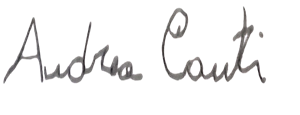 Andrea Conti